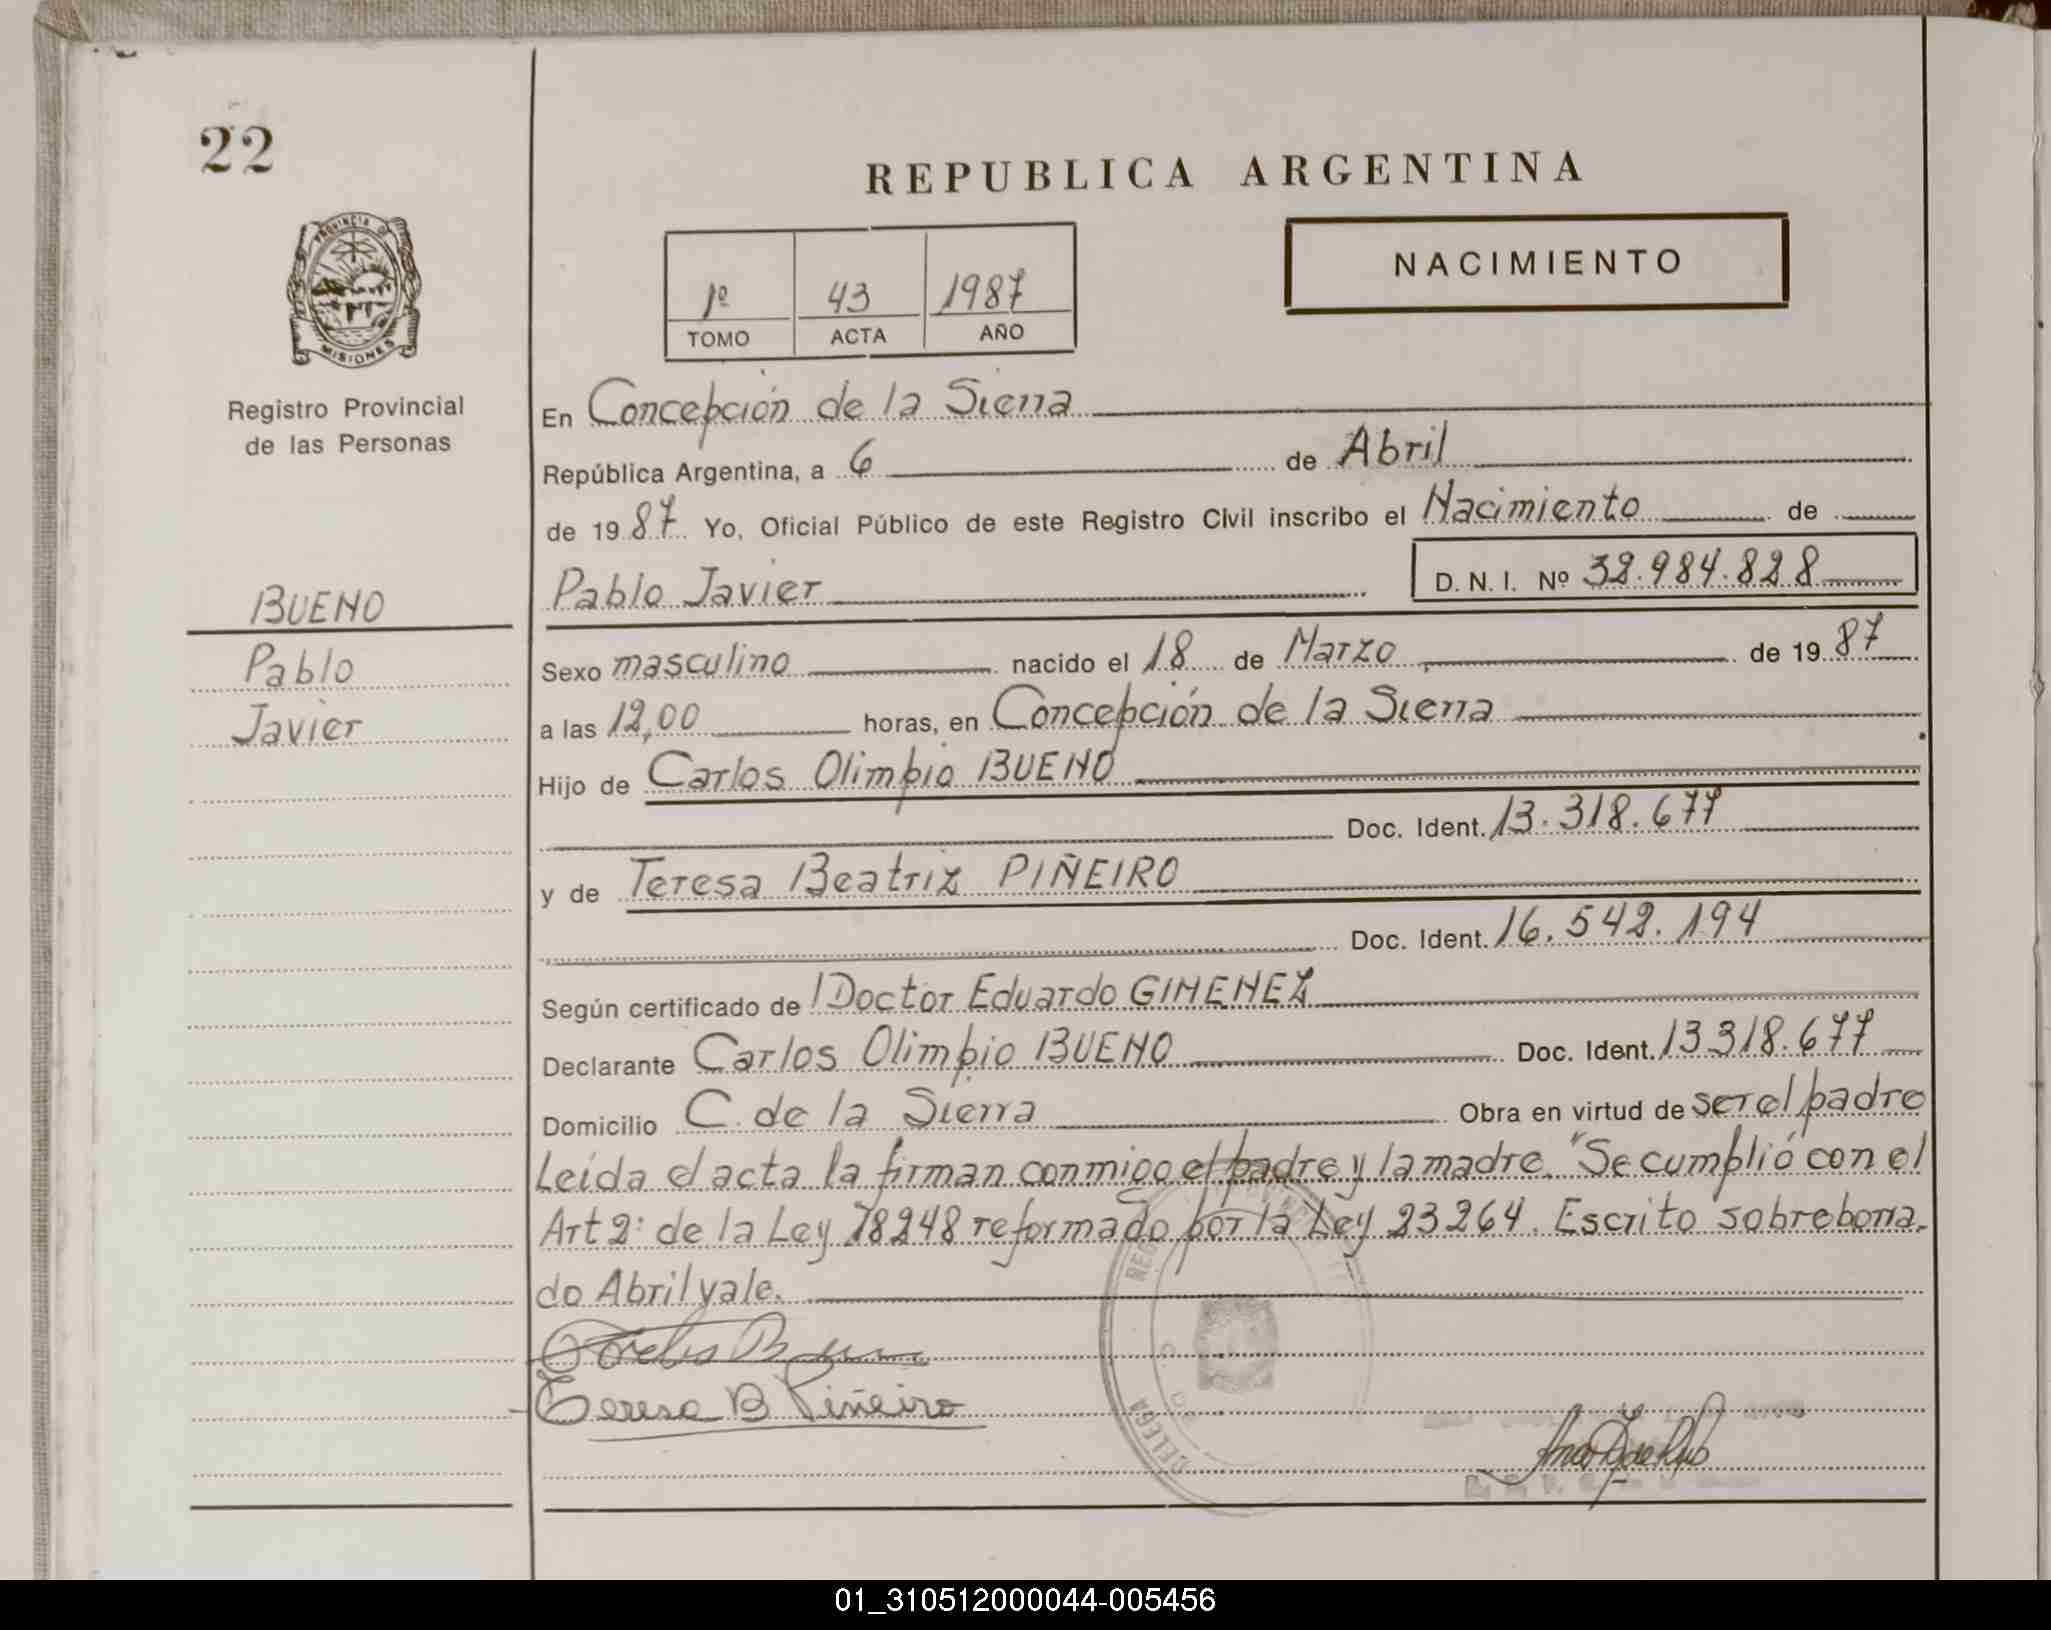 22
REPUBLICA ARGENTINA
NACIMIENTO
1º 43 1987
TOMO ACTA AÑO
PROVINCIA DE
MISIONES
Registro Provincial
de las Personas
BUENO
Pablo
Javier
En Concepción de la Sierra
República Argentina, a 6 de Abril
de 1987 Yo, Oficial Público de este Registro Civil inscribo el Nacimiento de
Pablo Javier D. N. I. Nº 32.984.828
Sexo masculino nacido el 18 de Marzo de 1987
a las 12,00 horas, en Concepción de la Sierra
Hijo de Carlos Olimpio BUENO
Doc. Ident. 13.318.677
y de Teresa Beatriz PIÑEIRO
Doc. Ident. 16.542.194
Según certificado de Doctor Eduardo GIMENEZ
Declarante Carlos Olimpio BUENO Doc. Ident. 13318.677
Domicilio C. de la Sierra Obra en virtud de ser el padre
Leída el acta la firman conmigo el padre y la madre. "Se cumplió con el
Art 2: de la Ley 18248 reformado por la Ley 23264. Escrito sobreborra
do Abril vale.
Teresa B Piñeiro
DELEGA
01_310512000044-005456